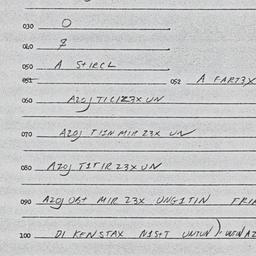 030 O
040 Z
050 A STIRCL
051 052 A FART3X
060 AZOJ TICIZ3X UN
070 AZOJ TIIN MIR Z3X UN
080 AZOJ TITIR Z3X UN
090 AZOJ OB+ MIR Z3X UNGITIN FRI
100 DI KENSTAX NIS+T UNTUN